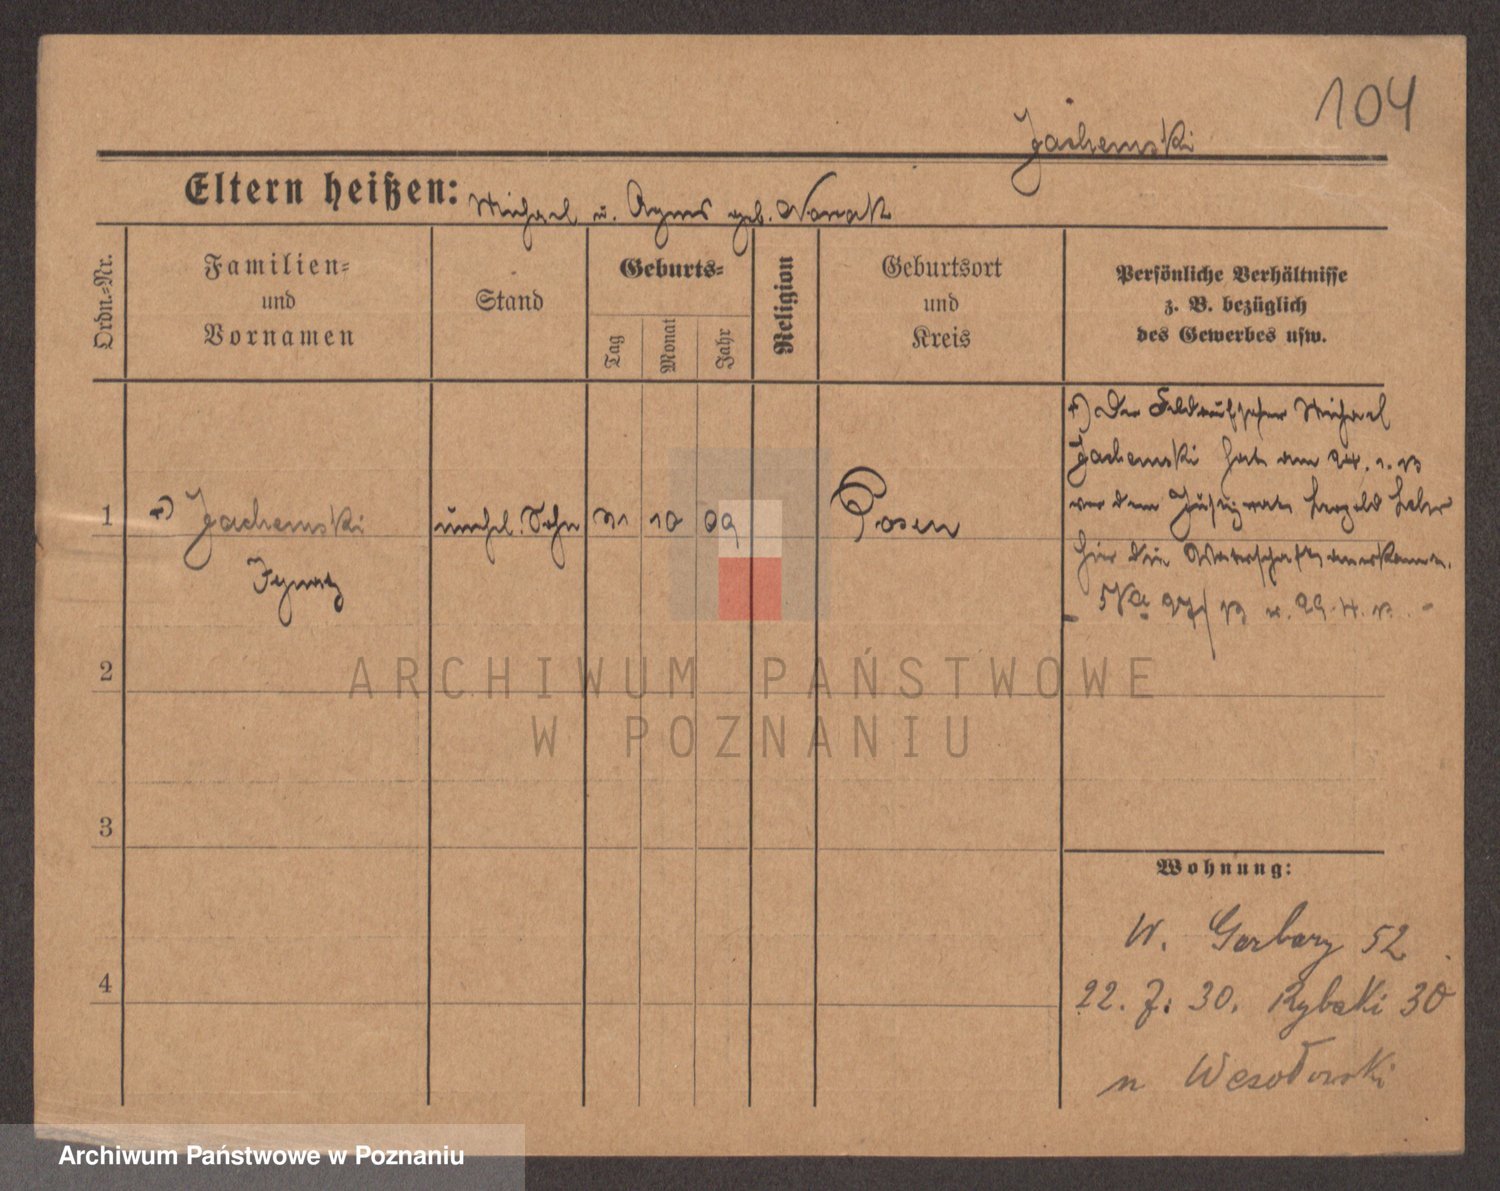 104
Jachemski
Eltern heißen: Michael u. Agnes geb. Nowak
Ordn.-Nr.
Familien-
und
Vornamen
Stand
Geburts-
Tag
Monat
Jahr
Religion
Geburtsort
und
Kreis
Persönliche Verhältnisse
z. B. bezüglich
des Gewerbes usw.
+) Der Feldaufseher Michael
Jachemski hat am 24. 1. 13
vor dem Justizrat Leopold
hier die Vaterschaft anerkannt.
1 +) Jachemski unehl. Sohn 10 09 Posen
Ignatz
2
3
4
Wohnung:
W. Garbary 52
22. 7. 30. Rybaki 30
Wesołowski
ARCHIWUM PAŃSTWOWE
W POZNANIU
Archiwum Państwowe w Poznaniu